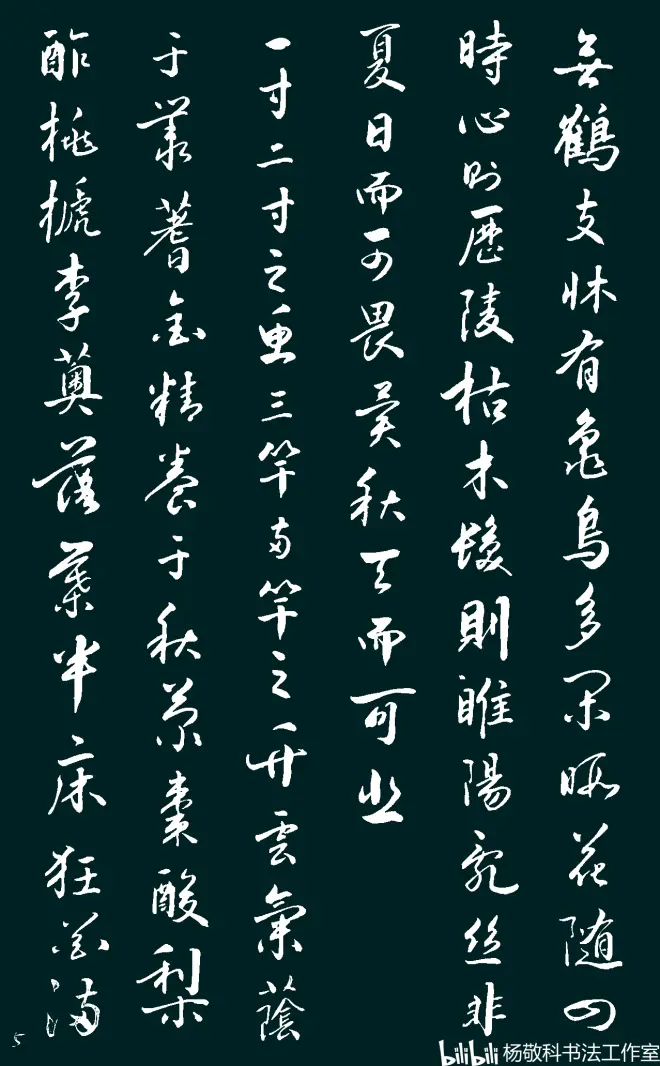 無鶴支牀有龜鳥多閑暇花隨四
時心則歷陵枯木髮則睢陽亂絲非
夏日而可畏異秋天而可悲
一寸二寸之魚三竿兩竿之竹雲氣蔭
于叢蓍金精養于秋菊棗酸梨
酢桃榹李薁落葉半床狂花滿
5
bilibili 杨敬科书法工作室